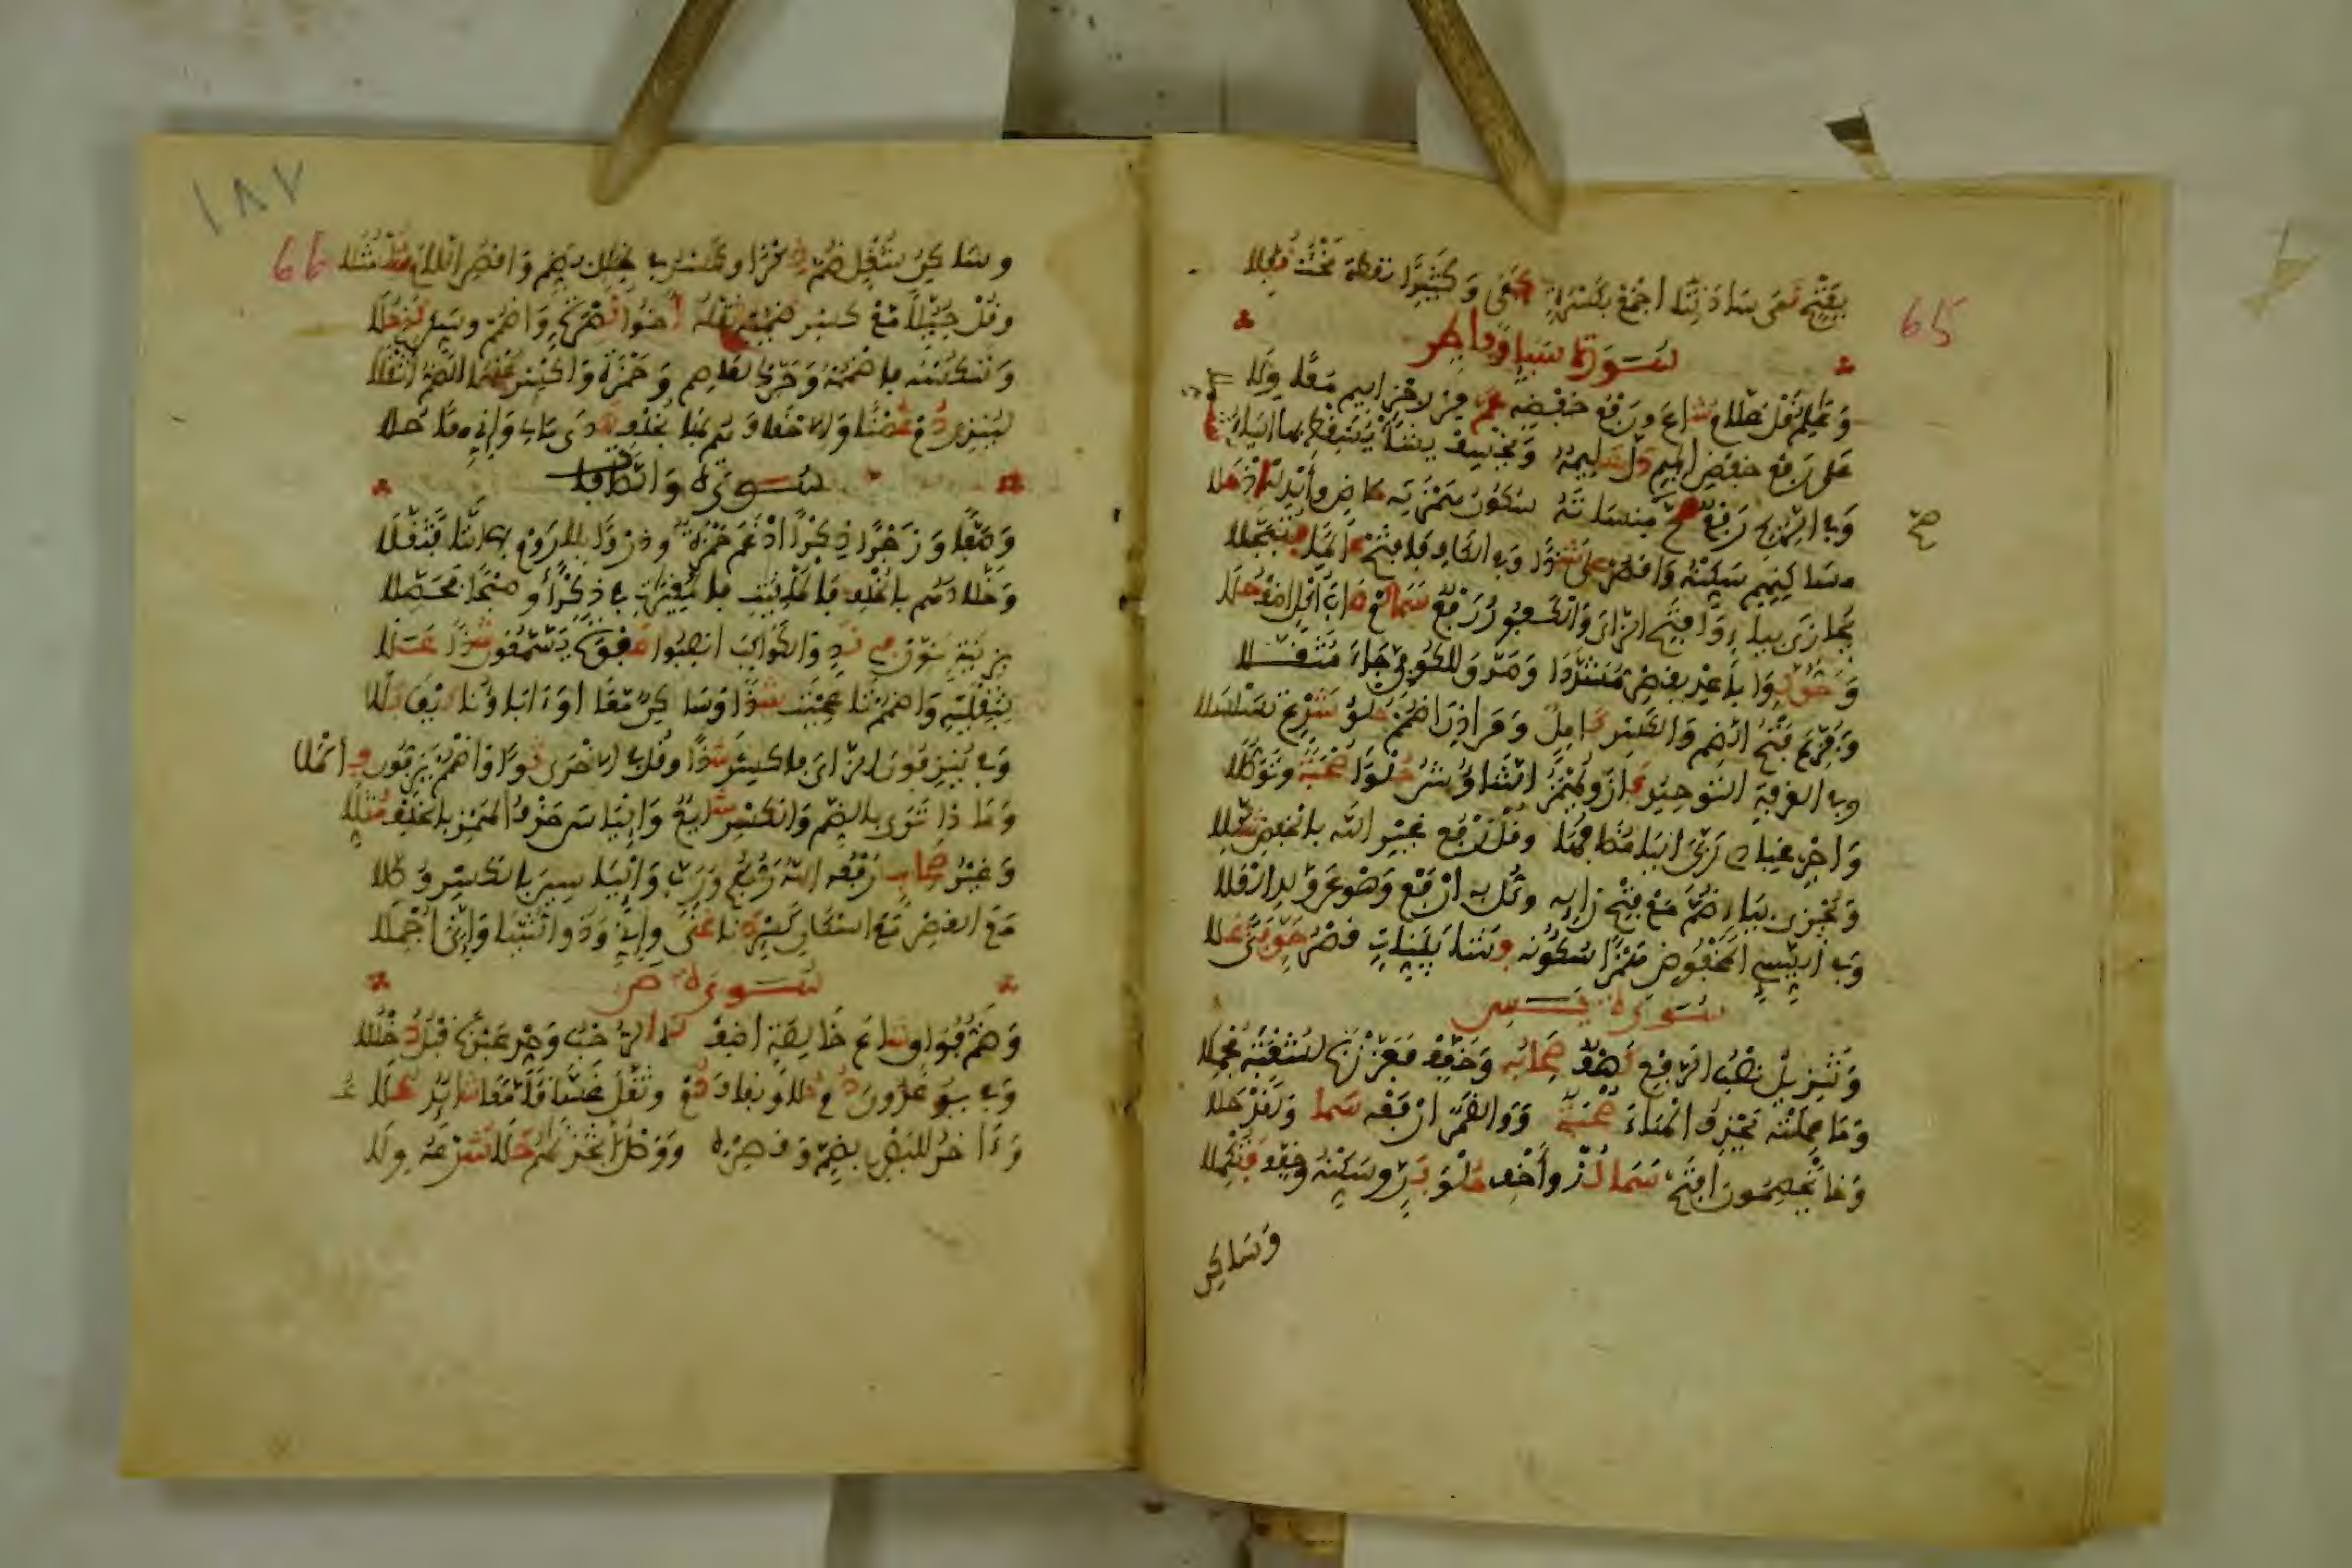 65
بفتح نمى ساداتنا اجمع بكسرة كفى وكثيرا نقطة تحت نفلا
سورة سبإ وفاطر
وعالم قل علام شاع ورفع خفضه عم من رجز اليم معا ولا
على رفع خفض الميم دل عليمه ونخسف نشأ نسقط بها الياء
وفي الريح رفع صح منسأته سكون همزته ماض وأبدله إذ حلا
مساكنهم سكنه واقصر على شذا وفي الكاف فافتح عالما فتبجلا
نجازي بياء وافتح الزاي والكفور رفع سما كم صاب أكل اضف حلا
وحق لوا باعد بقصر مشددا وصدق للكوفي جاء مثقلا
وفزع فتح الضم والكسر كامل ومن اذن اضمم حلو شرع تسلسلا
وفي الغرفة التوحيد فاز ويهمز التناوش حلوا صحبة وتوصلا
واجر عبادي ربي اليا مضافها وقل رفع غير الله بالخفض شكلا
ونجزي بياء ضم مع فتح زايه وكل به ارفع وهو عن ولد العلا
وفي السيئ المخفوض همزا سكونه فشا بينات قصر حق فتى علا
سورة يس
وتنزيل نصب الرفع كهف صحابه وخفف فعززنا لشعبة محملا
وما عملته يحذف الهاء صحبة ووالقمر ارفعه سما ولقد حلا
وخا يخصمون افتح سما لذ وأخف حلو بر وسكنه وخفف فتكملا
وساكن
١٨٧
66
وساكن شغل ضم ذكرا وكسر في ظلال بضم واقصر اللام شلشلا
وقل جبلا مع كسر ضميه ثقله أخو نصرة واضمم وسكن كذي حلا
وننكسه فاضممه وحرك لعاصم وحمزة واكسر عنهما الضم أثقلا
لينذر دم غصنا والاحقاف هم بها بخلف هدى مالي وإني معا حلا
سورة والصافات
وصفا وزجرا ذكرا ادغم حمزة وذروا بلا روم بها التا فثقلا
وخلادهم بالخلف فالملقيات فالمغيرات في ذكرا وصبحا فحصلا
بزينة نون في ند والكواكب انصبوا صفوة يسمعون شذا علا
بثقليه واضمم تا عجبت شذا وساكن معا او ءاباؤنا كيف بللا
وفي ينزفون الزاي فاكسر شذا وقل في الاخرى ثوى واضمم يزفون فاكملا
وماذا ترى بالضم والكسر شائع والياس حذف الهمز بالخلف مثلا
وغير صحاب رفعه الله ربكم ورب والياسين بالكسر وصلا
مع القصر مع اسكان كسر دنا غنى وإني وذو الثنيا وإني أجملا
سورة ص
وضم فواق شاع خالصة اضف له الرحب وحد عبدنا قبل دخللا
وفي يوعدون دم حلا وبقاف دم وثقل غساقا معا شائد علا
وءاخر للبصري بضم وقصره ووصل اتخذناهم حلا شرعه ولا